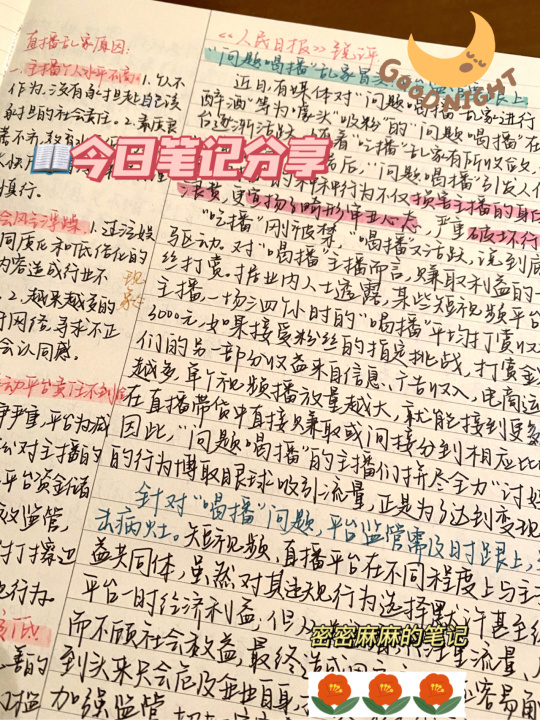 直播乱象原因:
一、主播个人水平不高
1.以不
作为,没有承担起自己该
承担的社会责任。2.素质良
莠不齐,
慎行。
📖今日笔记分享
会风气浮躁 1.过泛娱
同质化和低俗化的
内容造成行业不
现象
2.越来越多的
网络寻求不正
会认同感
动平台责任不到位
严重,平台为减
对主播的
平台资金储
效监管,
打打擦边
行为。
低
善的
门槛
《人民日报》锐评
"问题喝播"乱象
GOOD NIGHT
近日,有媒体对"问题喝播"乱象进行
醉酒"等为噱头"吸粉"的"问题喝播"在
台逐渐活跃。随着"吃播"乱象有所收敛,
后,"问题喝播"引发人们
行为不仅损害主播的身
浪费,更宣扬了畸形审丑心态,严重破坏行
"吃播"刚被禁,"喝播"又活跃,说到底
驱动。对"喝播"主播而言,赚取利益的一
丝打赏。据业内人士透露,某些短视频平台
主播,一场三四个小时的"喝播"平均打赏收
3000元,如果接受粉丝的指定挑战,打赏金
们的另一部分收益来自信息、广告收入,电商运
越竞,单个视频播放量越大,就能接到更多
在直播带货中直接赚取或间接分到相应比
因此,"问题喝播"的主播们拼尽全力"讨好
的行为博取眼球吸引流量,正是为了达到变现
针对"喝播"问题,平台监管需及时跟上,
去病灶。短视频、直播平台在不同程度上与主
益共同体,虽然对其违规行为选择默许甚至
平台一时经济利益,但
注重流量、
密密麻麻的笔记
而不顾社会效益,最终
到头来只会危及企业自身,
容易
加强监管